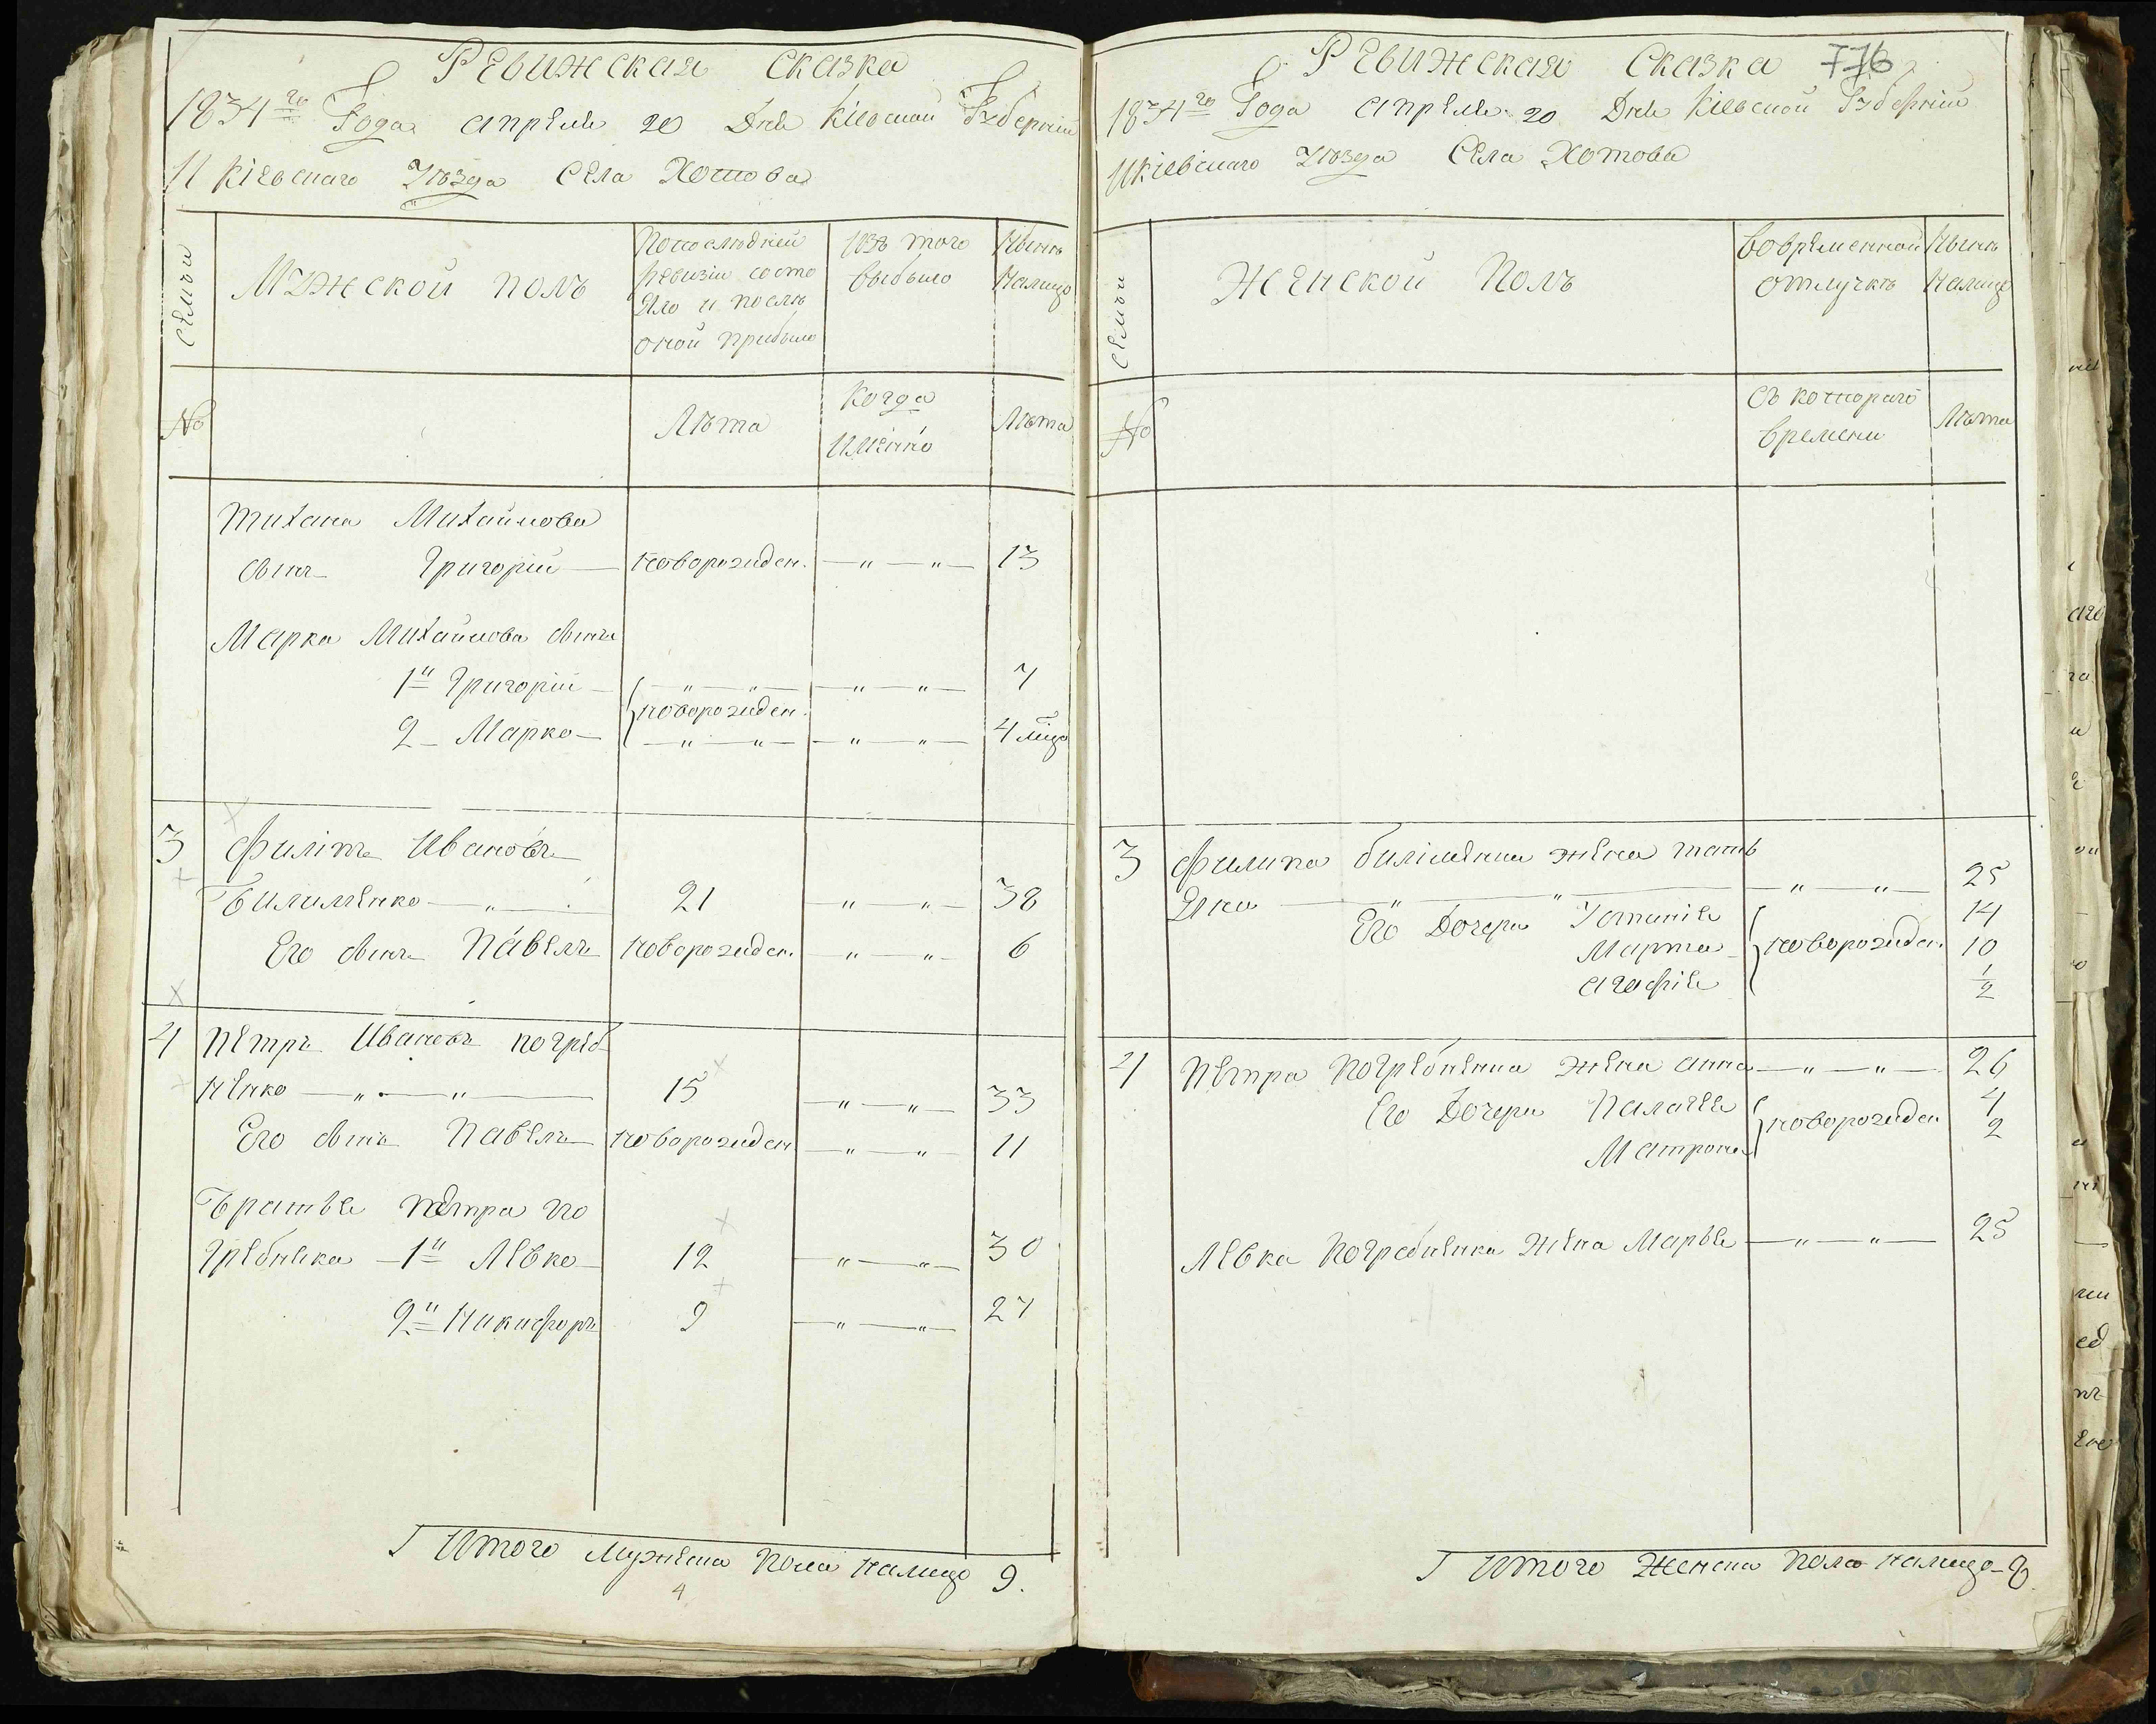 Ревижская сказка
1834го Года апреля 20 Дня Кіевской Губерніи
И Кіевскаго Уѣзда Села Хотова
Семьи
Мужской полъ
По последней
ревизіи состо
яло и послѣ
оной прибыло
изъ того
выбыло
Нынѣ
Налицо
№
Лѣта
Когда
имѣнно
Лѣта
Тихана Михайлова
сынъ Григорій — новорожден. — „ — „ — 13
Марка Михайлова сынъи
1й Григорій — — „ — „ — — „ — „ — 7
новорожден.
2 — Марко — — „ — „ — — „ — „ — 4 мцо
3 Филіпъ Ивановъ
Билименко — „ — 21 „ — „ — 38
Его сынъ Павелъ новорожден. „ — „ — 6
4 Петръ Ивановъ погреб
ненко — „ — „ — 15 — „ — „ — 33
Его сынъ Павелъ новорожден — „ — „ — 11
Братья петра по
гребненка — 1й Левко — 12 — „ — „ — 30
2й Никифоръ 9 — „ — „ — 27
Итого мужеска пола налицо 9.
4
Ревижская Сказка 776
1834го Года апреля 20 Дня Кіевской Губерніи
И Кіевскаго Уѣзда Села Хотова
Семьи
Женской Полъ
Вовременной
отлучкѣ
Нынѣ
Налицо
№
Съ котораго
времени
Лѣта
3 Филипа билименка жена тать
яна — „ — „ — — „ — „ — 25
Его Дочери Устинія 14
Марта новорожден. 10
агафія 1/2
4 Петра Погребненка жена анна — „ — „ — 26
Его Дочери Палагея 4
новорожден 2
Матрона
Левка Погребненка жена Марья — „ — „ — 25
Итого Женска пола налицо — 8.